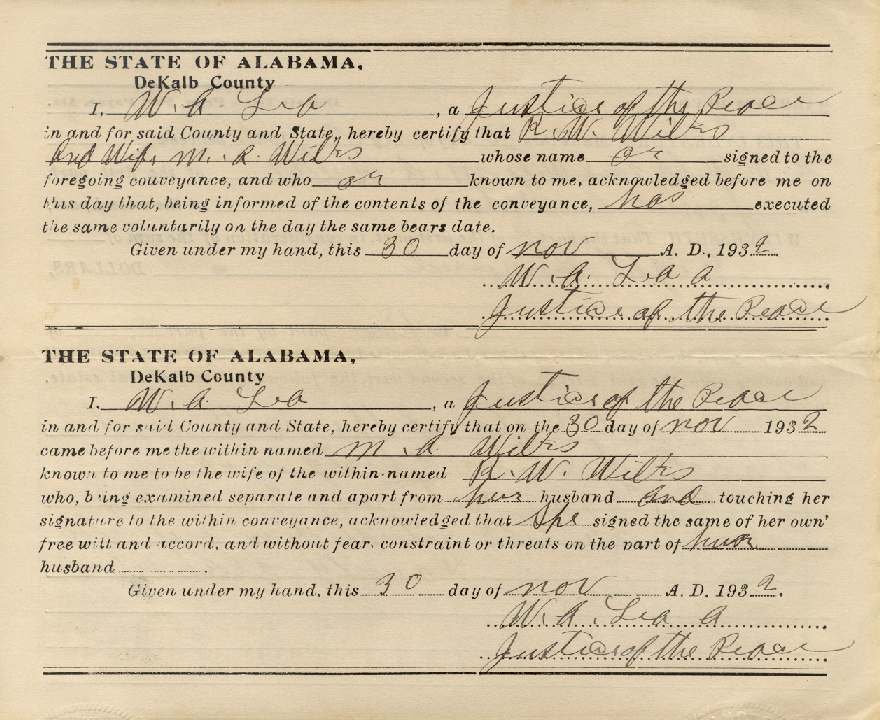 THE STATE OF ALABAMA,
DeKalb County
I, W. A. , a Justice of the Peace
in and for said County and State, hereby certify that R. W. Wilks
and Wife M. A. Wilks whose name signed to the
foregoing conveyance, and who known to me, acknowledged before me on
this day that, being informed of the contents of the conveyance, has executed
the same voluntarily on the day the same bears date.
Given under my hand, this 30 day of nov A. D., 1932
W. A.
Justice of the Peace
THE STATE OF ALABAMA,
DeKalb County
I, W. A. , a Justice of the Peace
in and for said County and State, hereby certify that on the 30 day of nov 1932
came before me the within named M. A Wilks
known to me to be the wife of the within-named R. W. Wilks
who, being examined separate and apart from husband and touching her
signature to the within conveyance, acknowledged that She signed the same of her own'
free will and accord, and without fear, constraint or threats on the part of
husband
Given under my hand, this 30 day of nov A. D. 1932.
W. A.
Justice of the Peace